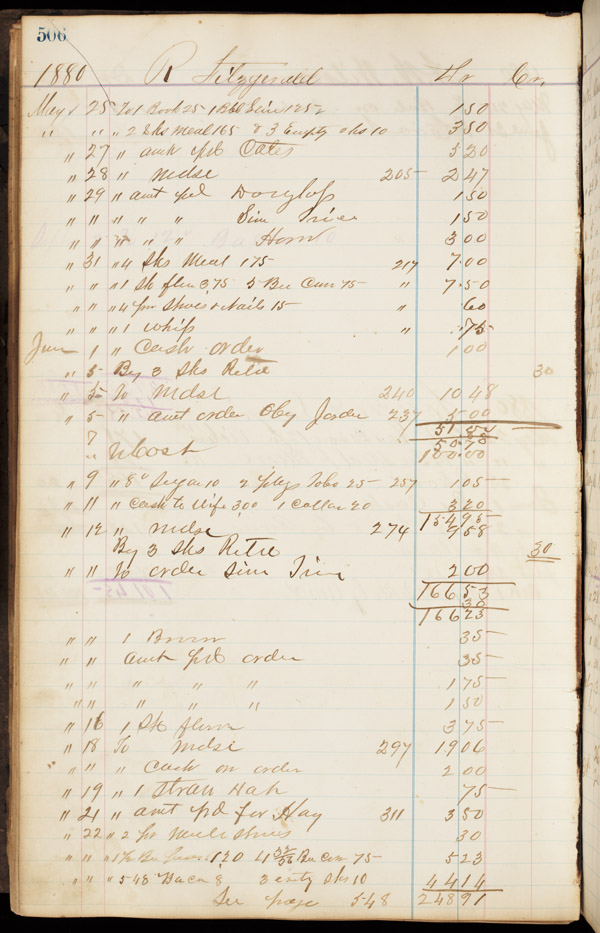 506
1880 R Fitzgerald Dr Cr.
May 25 To 1 Book 25 1 Bbl Lime 125 1 50
" " " 2 Sks Meal 165 & 3 Empty sks 10 3 50
" 27 " amt pd Oates 5 20
" 28 " mdse 205 2 47
" 29 " amt pd 1 50
" " " " " Sim 1 50
" " " " " Horn 3 00
" 31 " 4 Sks Meal 175 217 7 00
" " " 1 Sk flour 3,75 5 Bu Corn 75 " 7.50
" " " 4 pr Shoes & Nails 15 " 60
" " " 1 whip " .75
June 1 " Cash order 1 00
" 5 By 3 Sks Retd 30
" 5 To Mdse 240 10 48
" 5 " amt order Oby 237 5 00
51
50.70
7
" 100.00
" 9 " 8 Sugar 10 2 plugs Tobo 25 257 1 05
" 11 " Cash to Wife 300 1 Collar 20 3 20
154 95
" 12 " mdse 274 958
By 3 Sks Retd 30
" " To order Sim 2 00
166 53
30
166 23
" " 1 35
" " amt pd order 35
" " " " " " 1 75
" " " " " " 1 50
" 16 1 Sk flour 3 75
" 18 To mdse 297 19 06
" " " Cash on order 2 00
" 19 " 1 Straw Hat 75
" 21 " amt pd for Hay 311 3 50
" 22 " 2 pr Mule Shoes 30
" " " 120 Bu Corn 75 5 23
" " " 548 Bacon 8 3 emty Sks 10 44 14
See page 548 248 91